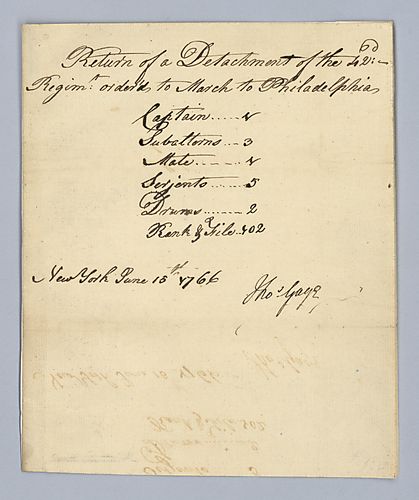 Return of a Detachment of the 42d:
Regimt. order'd to March to Philadelphia
Captain ..... 1
Subalterns ... 3
Mate ...... 1
Serjents ..... 5
Drums ....... 2
Rank & File . 102
New York June 15th. 1766
Thos Gage